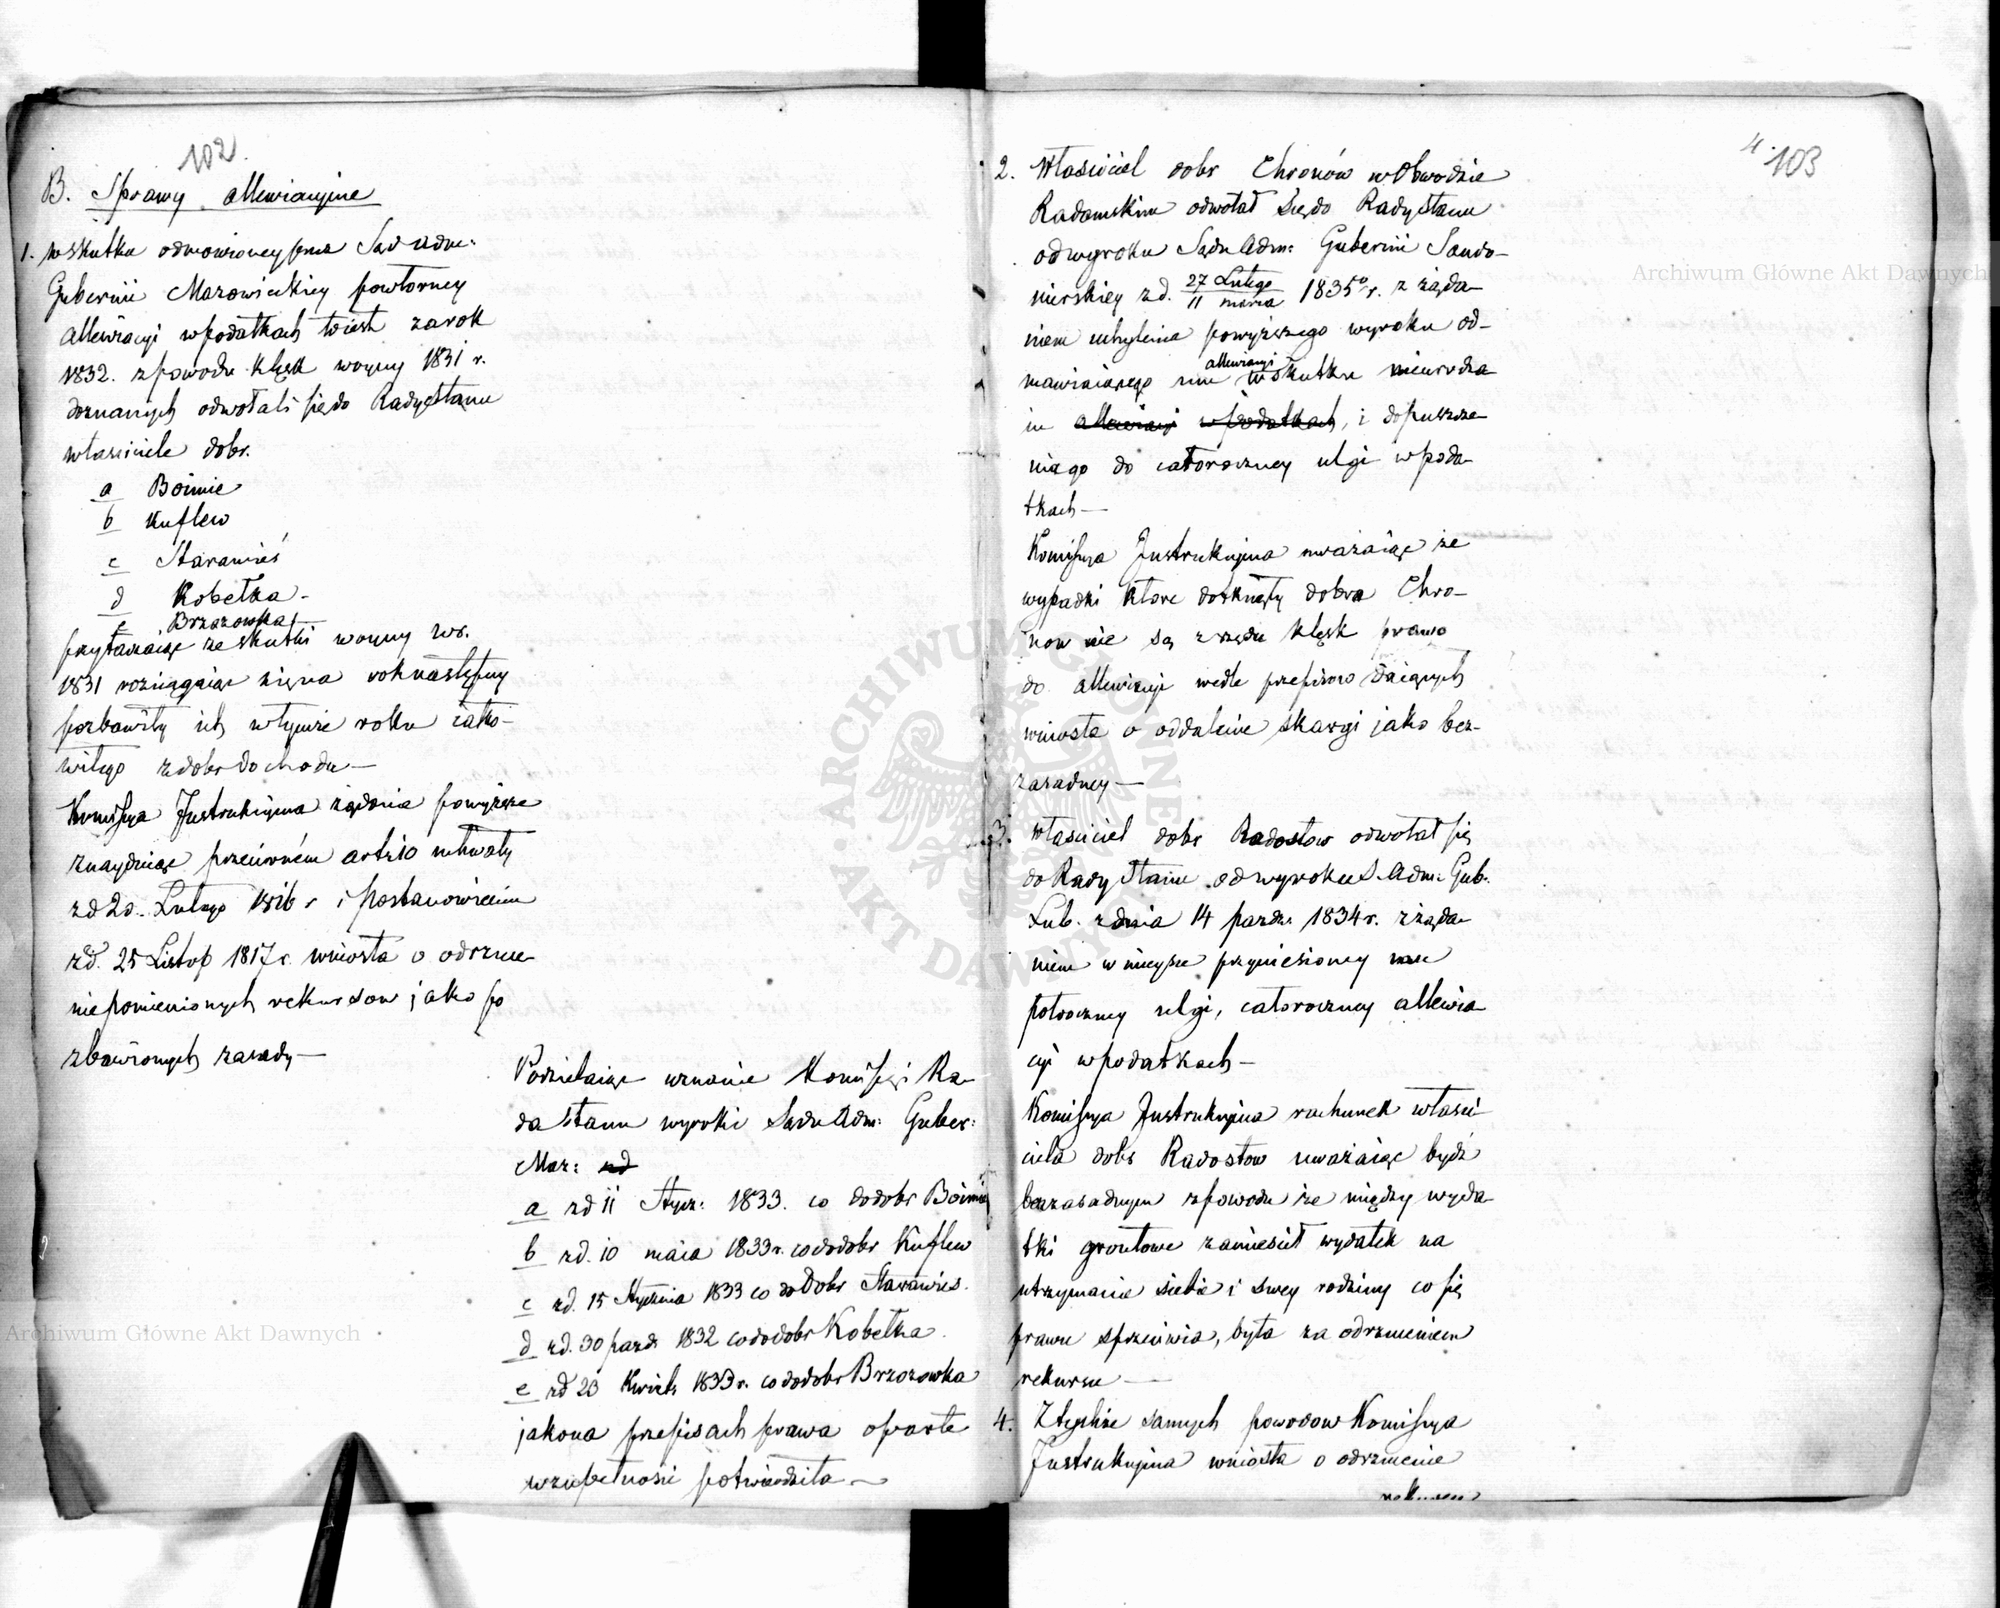 102
B. Sprawy allewiacyjne
1. wskutku odmówioney przez Sąd adm:
Gubernii Mazowieckiey powtorney
allewiacyi w podatkach tcież za rok
1832. z powodu klęsk woyny 1831 r.
doznanych odwołali się do Rady Stanu
własciciele dobr.
a Boimie
b Kuflew
c Starawieś
d Kobełka -
Brzozowka
przytaczaiąc że skutki woyny w r.
1831 roziągaiąc się na rok następny
pozbawiły ich w tymże roku całko-
witego z dobr dochodu —
Komissya Instrukcyina żądania powyższe
znayduiąc przeciwném art 10 uchwały
z d 20. Lutego 1816 r i postanowieniu
z d. 25 Listop 1817 r. wniosła o odrzuce-
nie pomienionych rekursow jako po
zbawionych zasady —
Podzielaiąc uznanie Komissyi Ra-
da Stanu wyroki Sądu Adm: Guber:
Maz:
a z d 11 Stycz: 1833. co do dobr Boimie
b z d. 10 maia 1833 r. co do dobr Kuflew
c z d. 15 Stycznia 1833 co do Dobr Starawies.
d z d. 30 pazdz 1832 co do dobr Kobełka.
e z d 23 Kwiet 1833 r. co do dobr Brzozowka
jako na przepisach prawa oparte
w zupełnosci potwierdziła —
4. 103
2. Własciciel dobr Chronów w Obwodzie
Radomskim odwołał się do Rady Stanu
od wyroku Sądu Adm: Gubernii Sando-
mierskiey z d. 27 Lutego / 11 marca 1835 r. z żąda-
niem uchylenia powyższego wyroku od-
allewiacyi
mawiaiącego mu w skutku nieurodza-
iu allewiacyi w podatkach, i dopuszcze-
nia go do całoroczney ulgi w poda-
tkach —
Komissya Instrukcyina uważaiąc że
wypadki ktore dotknęły dobra Chro-
now nie są z rzędu klęsk prawo
do allewiacyi wedle przepisow daiących
wniosła o oddalenie skargi jako bez-
zasadney —
3. Własciciel dobr Radostow odwołał się
do Rady Stanu od wyroku S. Adm: Gub.
Lub. z dnia 14 pazdz. 1834 r. z żąda-
niem w mieysce przyniesioney mu
połroczney ulgi, całoroczney allewia-
cyi w podatkach —
Komissya Instrukcyina rachunek własci-
ciela dobr Radostow uważaiąc bydź
bezzasadnym z powodu że między wyda-
tki grontowe zamiescił wydatek na
utrzymanie siebie i swey rodziny co się
prawu sprzeciwia, była za odrzuceniem
rekursu —
4. Z tychże samych powodow Komissya
Instrukcyina wniosła o odrzucenie
rekursu
Archiwum Główne Akt Dawnych
Archiwum Główne Akt Dawnych
ARCHIWUM GŁÓWNE AKT DAWNYCH